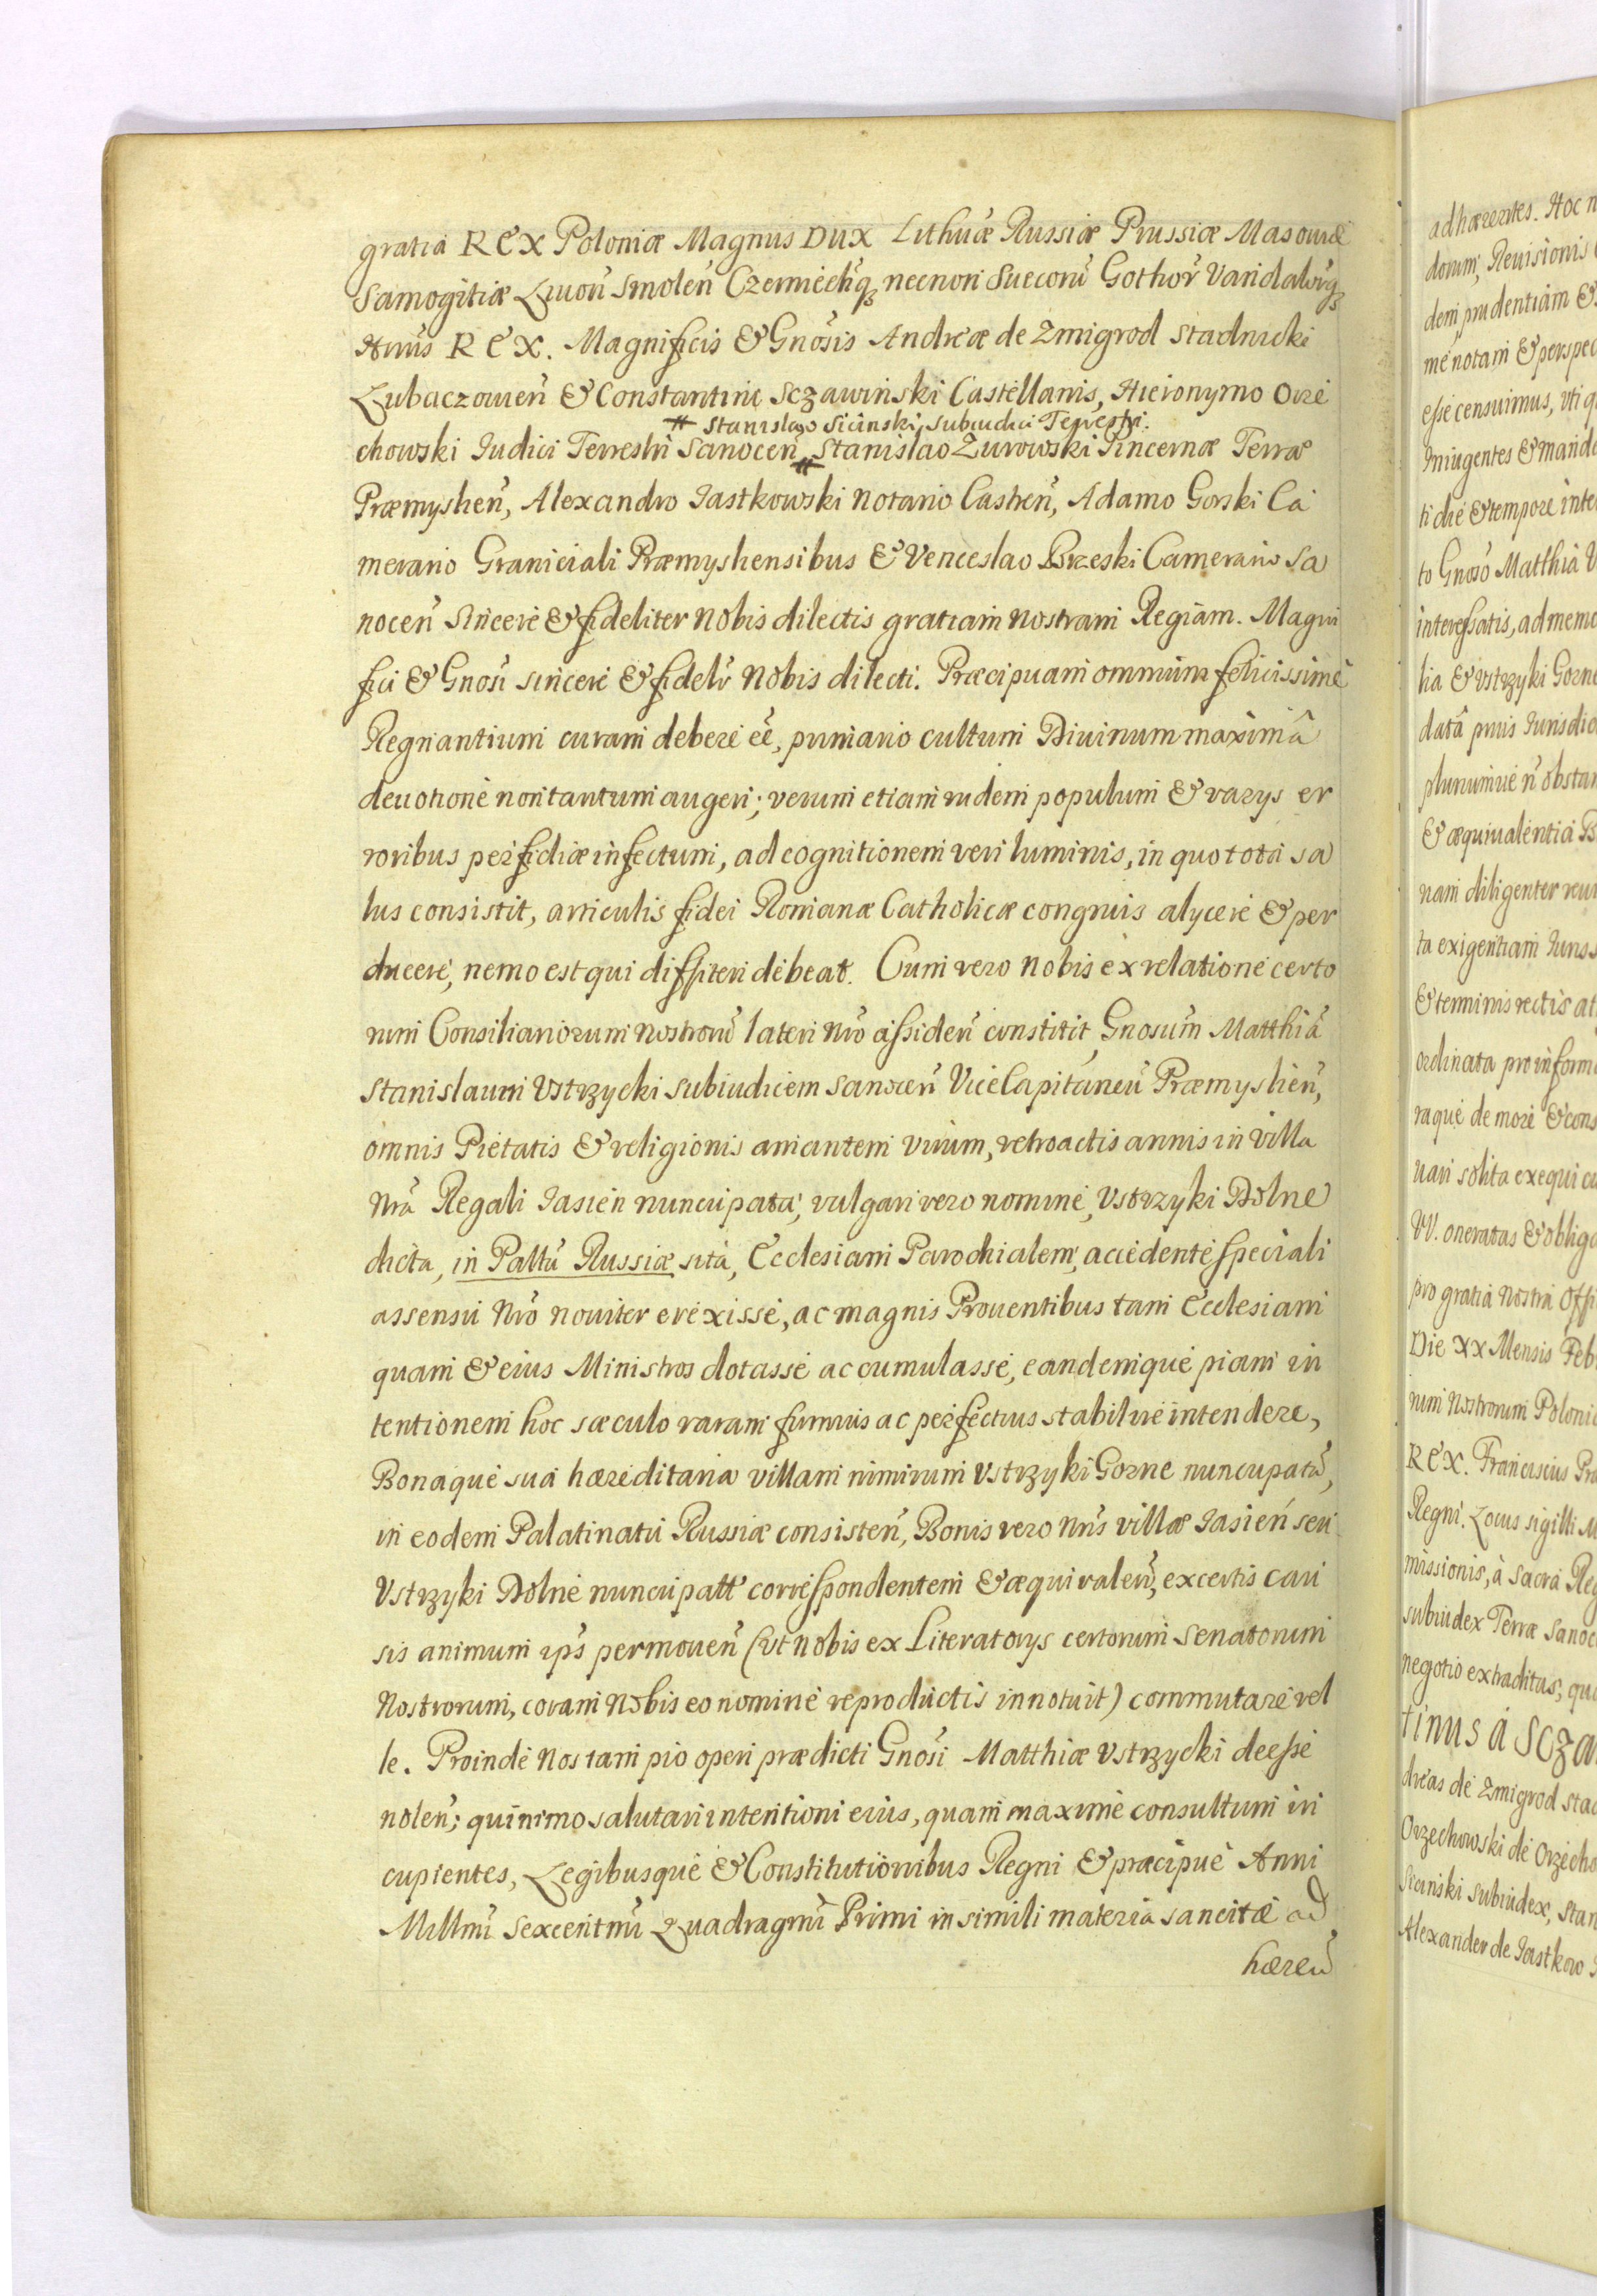 gratia REX Poloniæ Magnus DUX Lithũæ Russiæ Prussiæ Masouiæ
Samogitiæ Liuoñ Smoleñ Czerniechq́ necnon Suecorũ Gothor̃ Vandalorq́
Hrius REX. Magnificis & Gnosis Andreæ de Zmigrod Stadnicki
Lubaczoueñ & Constantini Sczawinski Castellanis, Hieronymo Orze
# Stanislao Sicinski Subiudici Terrestri.
chowski Iudici Terrestri Sanoceñ # Stanislao Zurowski Pincernæ Terræ
Præmyslieñ, Alexandro Iastkowski Notario Castreñ, Adamo Gorski Ca
merario Graniciali Præmysliensibus & Venceslao Brzeski Camerario Sa
noceñ Sincere & fideliter Nobis dilectis gratiam nostram Regiam. Magni
fici & Gnosi sincere & fidelr̃ Nobis dilecti. Præcipuam omnium felicissime
Regnantium curam debere ẽe, primario cultum Diuinum maximâ
deuotione non tantum augeri; verum etiam rudem populum & varys er
roribus perfidiæ infectum, ad cognitionem veri luminis, in quo tota sa
lus consistit, articulis fidei Romanæ Catholicæ congruis alycere & per
ducere, nemo est qui diffiteri debeat. Cum vero Nobis ex relatione certo
rum Consiliariorum Nostrorũ lateri Nrõ assideñ constitit Gnosum Matthiã
Stanislaum Vstrzycki Subiudicem Sanoceñ ViceCapitaneũ Præmysliẽn,
omnis Pietatis & religionis amantem virum, retroactis annis in villa
Nrã Regali Iasień nuncupata, vulgari vero nomine, Vstrzyki Dolne
dicta, in Pallũ Russiæ sità, Ecclesiam Parochialem, accedente speciali
assensu Nrõ nouiter erexisse, ac magnis Prouentibus tam Ecclesiam
quam & eius Ministros dotasse ac cumulasse, eandemque piam in
tentionem hoc sæculo raram firmius ac perfectius stabilire intendere,
Bonaque sua hæreditaria villam nimirum Vstrzyki Gorne nuncupatã,
in eodem Palatinatu Russiæ consisteñ, Bonis vero Nris villæ Iasień seu
Vstrzyki Dolne nuncupatt̃ correspondentem & æquivaleñ, excertis cau
sis animum ips̃ permoueñ (vt Nobis ex Literatorys certorum Senatorum
Nostrorum, coram Nobis eo nomine reproductis innotuit) commutare vel
le. Proinde Nos tam pio operi prædicti Gnosi Matthiæ Vstrzycki deesse
noleñ; quinimo salutari intentioni eius, quam maxime consultum iri
cupientes, Legibusque & Constitutionibus Regni & præcipue Anni
Millmi Sexcentmi Quadragmi Primi in simili materia sancitæ ad
hæreñ
adhærentes. Hoc n
dorum, Reuisionis
dem prudentiam &
me notam & perspec
esse censuimus, vti q
Iniugentes & manda
ti die & tempore inte
to Gnoso Matthia V
interessatis, ad memo
lia & Vstrzyki Gorne
datã prius Iurisdic
plurimive ñ obstan
& æquiualentia B
nam diligenter reui
ta exigentiam Iuris s
& terminis rectis at
ordinata pro inform
raque de more & cons
uari solita exequi cu
VV. oneratas & obliga
pro gratia Nostra Offi
Die XX Mensis Feb
rum Nostrorum Poloni
REX. Franciscus Pra
Regni. Locus sigilli M
missionis, à Sacra Reg
Subiudex Terræ Sanoc
negotio extraditus, qu
tinus à Scza
dreas de Zmigrod Sta
Orzechowski de Orzecho
Sicinski Subiudex, Stan
Alexander de Iastkow I